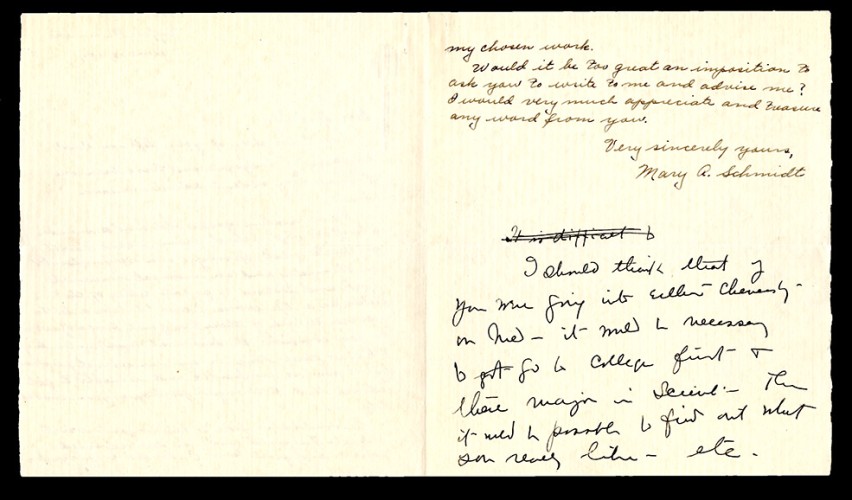 my chosen work.
Would it be too great an imposition to
ask you to write to me and advise me?
I would very much appreciate and treasure
any word from you.
Very sincerely yours,
Mary A. Schmidt
It is difficult to
I should think that if
you were going into either Chemistry -
or Med - it would be necessary
to go to college first &
there major in Science - Then
it would be possible to find out what
you really like - etc.